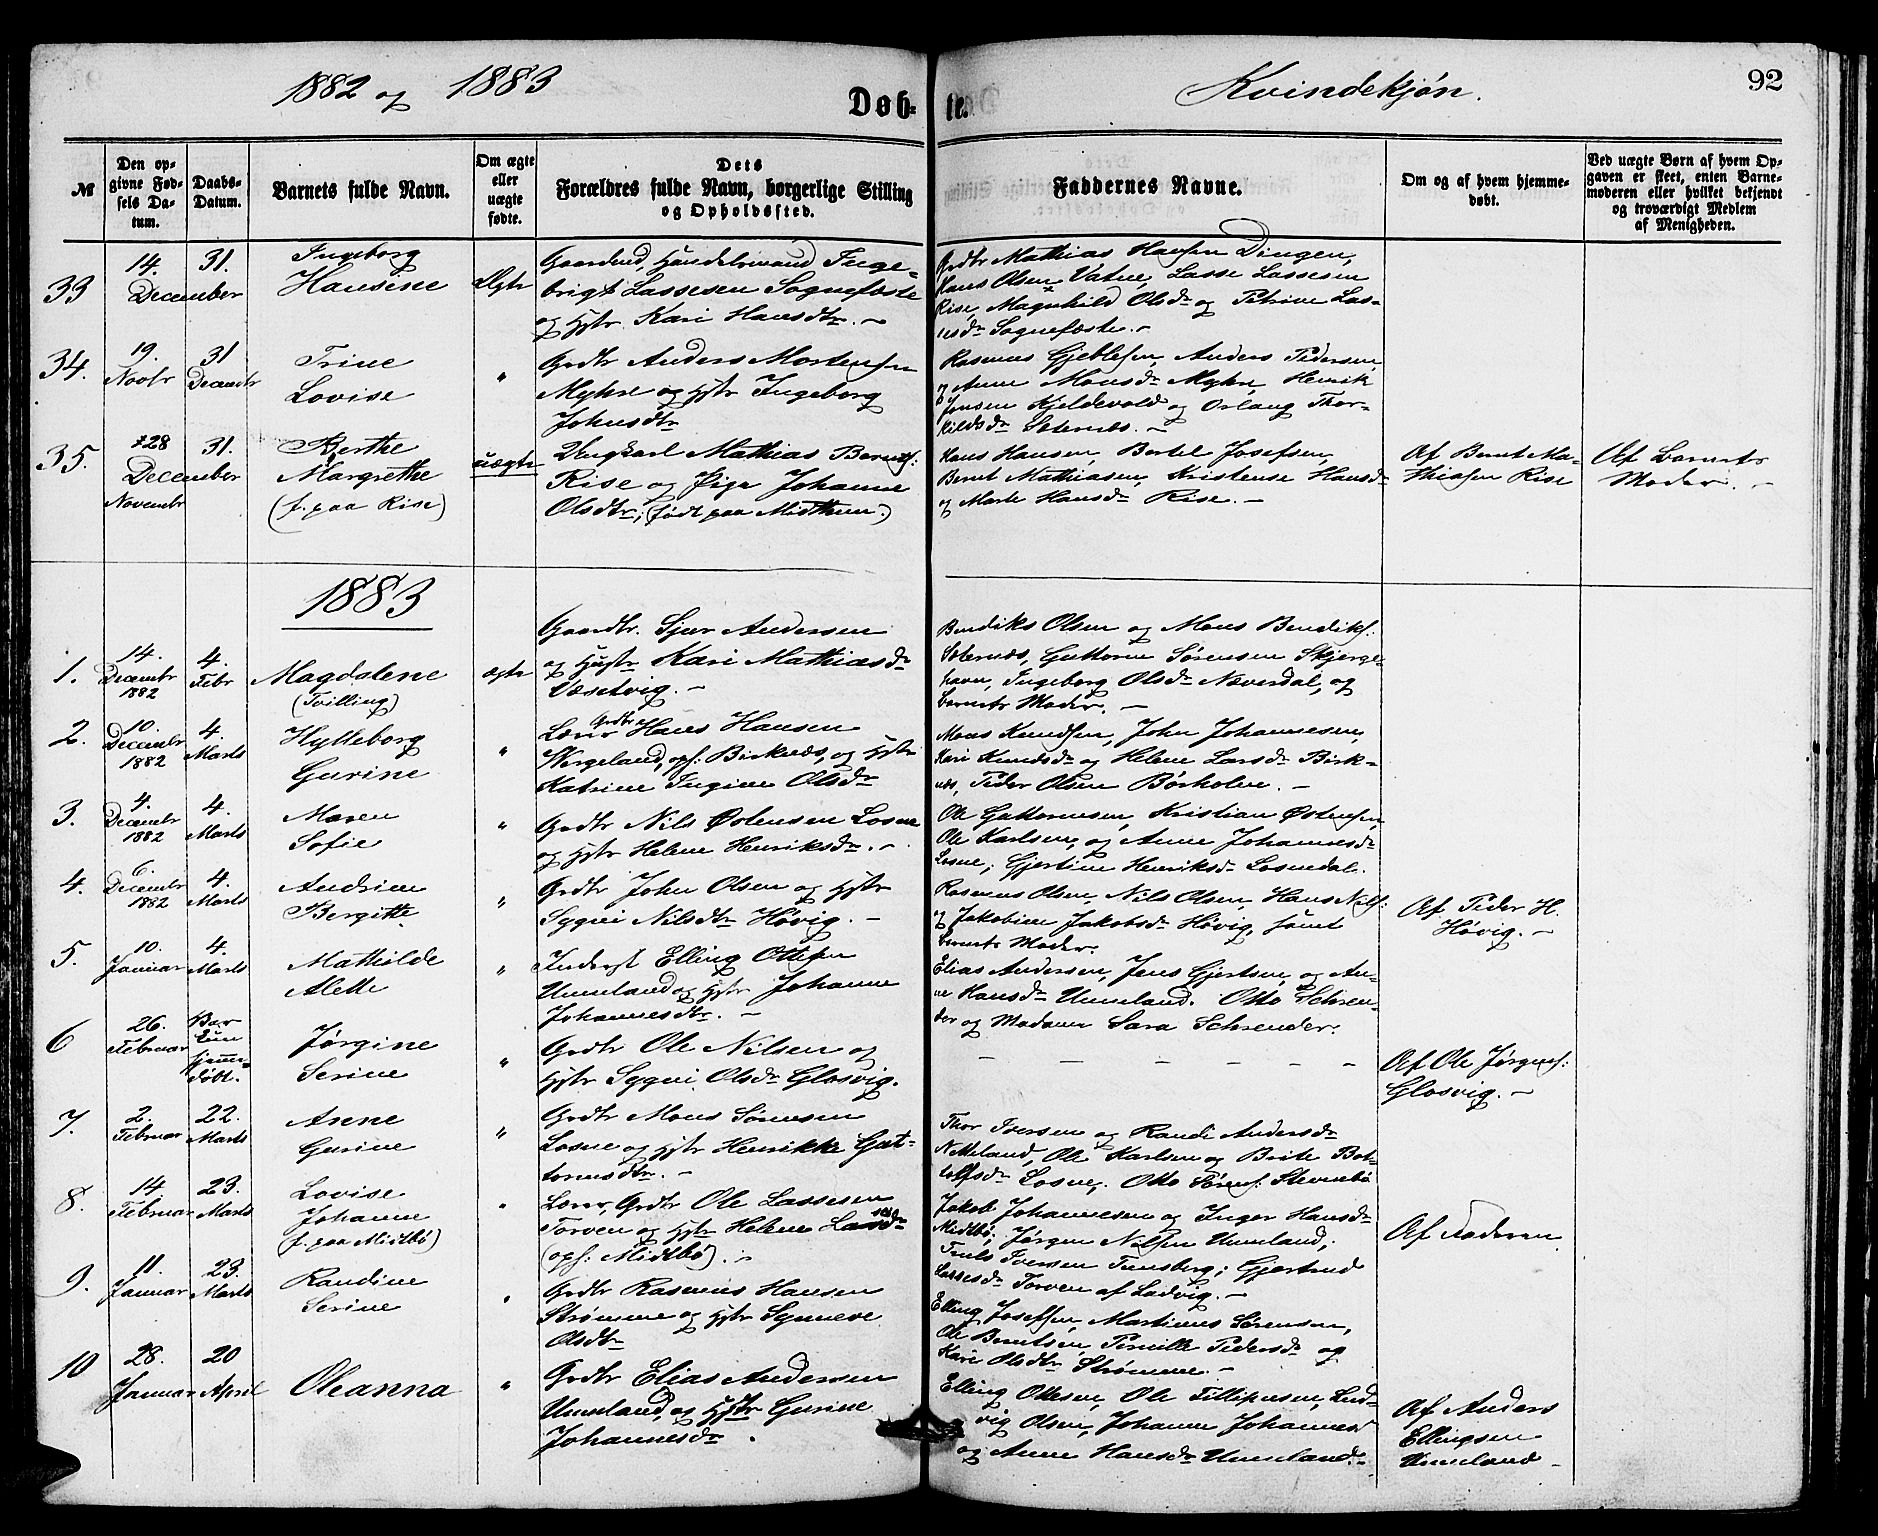 1882 og 1883
Døb-
te.
Kvindekjøn.
92
№
Den op-
givne Fød-
sels Da-
tum.
Daabs-
Datum.
Barnets fulde Navn.
Om ægte
eller
uægte
fødte.
Dets
Forældres fulde Navn, borgerlige Stilling
og Opholdssted.
Faddernes Navne.
Om og af hvem hjemme-
døbt.
Ved uægte Børn af hvem Op-
gaven er skeet, enten Barne-
moderen eller hvilket bekjendt
og troværdigt Medlem
af Menigheden.
33
14.
December
31.
Ingeborg
Hansine
Ægte
Handelsmand Inge-
brigt Lassesen Sognefæste
og Hstr Kari Hansdtr. -
Grdbr Mathias Hansen Dingen,
Hans Olsen Vatne, Lasse Lassesen
Rise, Magnhild Olsdr og Petrine Las-
sesdr Sognefæste. -
34.
19.
Novbr
31
Decembr
Trine
Lovise
"
Grdbr Anders Mortensen
Myhre og Hstr Ingeborg
Johnsdtr
Rasmus Gjeblesen, Anders Pedersen,
og Anne Monsdr Myhre, Henrik
Jensen Kjeldevold og Orlaug Thor-
kildsdr Sæternes. -
35.
28
December
Novembr
31.
Berthe
Margrethe
(f. paa Rise)
uægte
Ungkarl Mathias Bernts:
Rise og Pige Johanne
Olsdtr, (født paa Midttun.)
Hans Hansen, Bertel Josefsen,
Bernt Mathiasen, Kristense Hansd-
og Marte Hansdr Rise. -
Af Bernt Ma-
thiasen Rise
Af Barnets
Moder. -
1883
1.
14.
Decembr
1882
4.
Febr
Magdalene
(Tvilling)
ægte
Gaardbr. Sjur Andersen
og Hustr Kari Mathiasdr
Væsetvig. -
Bendiks Olsen og Mons Bendiks:
Sæternes, Guttorm Sørensen Skjerge-
havn, Ingeborg Olsdr Næverdal, og
Barnets Moder. -
2.
10.
Decembr
1882
4.
Marts
Hylleborg
Gurine
"
Grdbr
Lærer Hans Hansen
Wergeland, oph: Birknes, og Hstr
Katrine Ingine Olsdr
Mons Knudsen, John Johannesen,
Kari Knudsdr og Helene Larsdr Birk-
nes, Peder Olsen Børholm. -
3.
4.
Decembr
1882
4.
Marts
Maren
Sofie
"
Grdbr Nils Østensen Losne
og Hstr Helene Henriksdr. -
Ole Guttormsen, Kristian Østensen,
Ole Karlsen, og Anne Johannesdr
Losne; Gjertine Henriksdr Losnedal.
4.
6.
Decembr
1882
4.
Marts
Andrine
Bergitte
"
Grdbr John Olsen og Hstr
Sygni Nilsdtr Høvig. -
Rasmus Olsen, Nils Olsen, Hans Nils:
og Jakobine Jakobsdr Høvig, samt
Barnets Moder.
Af Peder H.
Høvig. -
5.
10.
Januar
4.
Marts
Mathilde
Alette
"
Inderst Elling Ottesen
Unneland og Hstr Johanne
Johannesdtr. -
Elias Andersen, Jens Gjertsen, og An-
ne Hansdr Unneland. Otto Schreu-
der og Madame Sara Schreuder.
6
26.
Februar
Bar-
kun
hjemme-
døbt.
Jørgine
Serine
"
Grdbr Ole Nilsen og
Hstr Sygni Olsdr Glosvig.
- - - - - -
Af Ole Jørgens:
Glosvig. -
7.
2.
Februar
22.
Marts
Anne
Gurine
"
Grdbr Mons Sørensen
Losne og Hstr Henrikke Gut-
tormsdtr. -
Thor Iversen og Randi Andersdr
Nitteland, Ole Karlsen og Brite Bot-
tolfsdr Losne, Otto Sørens: Steensbø
8.
14
Februar
23.
Marts
Lovise
Johanne
(f. paa Midtbø)
"
Lærer, Grdbr Ole Lassesen
Torven og Hstr Helene Lassesdr
(oph: Midtbø). -
Jakob Johannesen og Inger Hansdr
Midtbø, Jørgen Nilsen Unneland,
Truls Iversen Tunsberg; Gjertrud
Lassesdr Torven af Ladvig. -
Af Faderen
9.
11.
Januar
23.
Marts
Randine
Serine
"
Grdbr Rasmus Hansen
Strømme og Hstr Synneve
Olsdtr
Elling Josefsen, Martinus Sørensen,
Ole Berntsen, Pernille Pedersdr og
Kari Olsdtr Strømme. -
10
28.
Januar
20
April
Oleanna
"
Grdbr Elias Andersen
Unneland, og Hstr Gurine
Johannesdr.
Elling Ottesen, Ole Fillipusen, Lud-
vig Olsen, Johanne Johannesd
og Anne Hansdr Unneland. -
Af Anders
Ellingsen
Unneland -